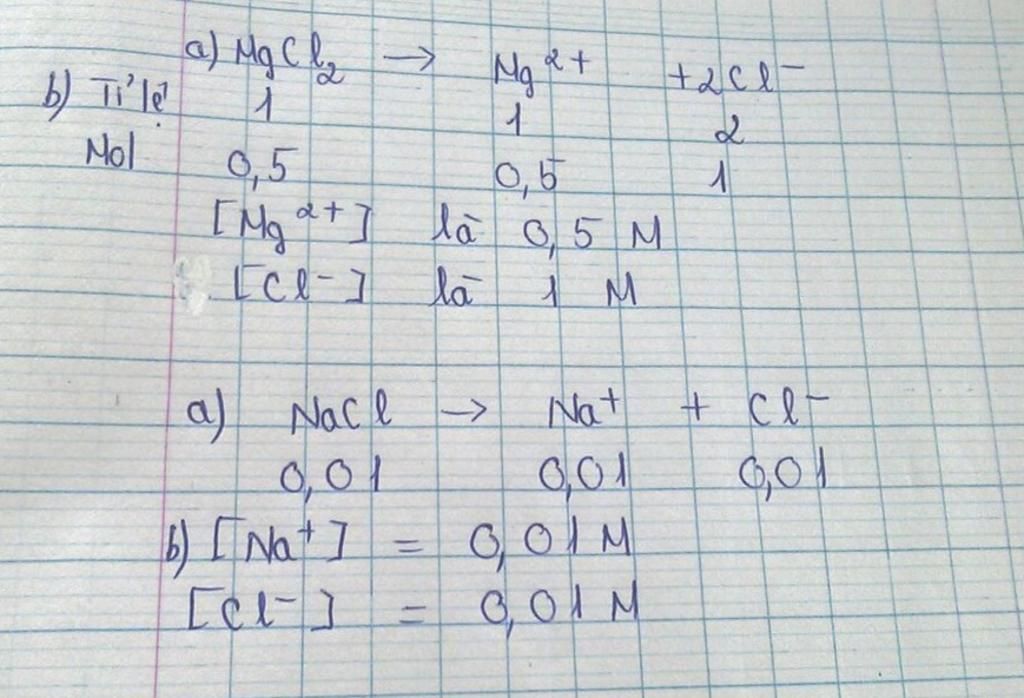 a) MgCl₂ → Mg²⁺ +2Cl⁻
b) Tỉ lệ 1 1 2
Mol 0,5 0,5 1
[Mg²⁺] là 0,5 M
[Cl⁻] là 1 M
a) NaCl → Na⁺ + Cl⁻
0,01 0,01 0,01
b) [Na⁺] = 0,01 M
[Cl⁻] = 0,01 M